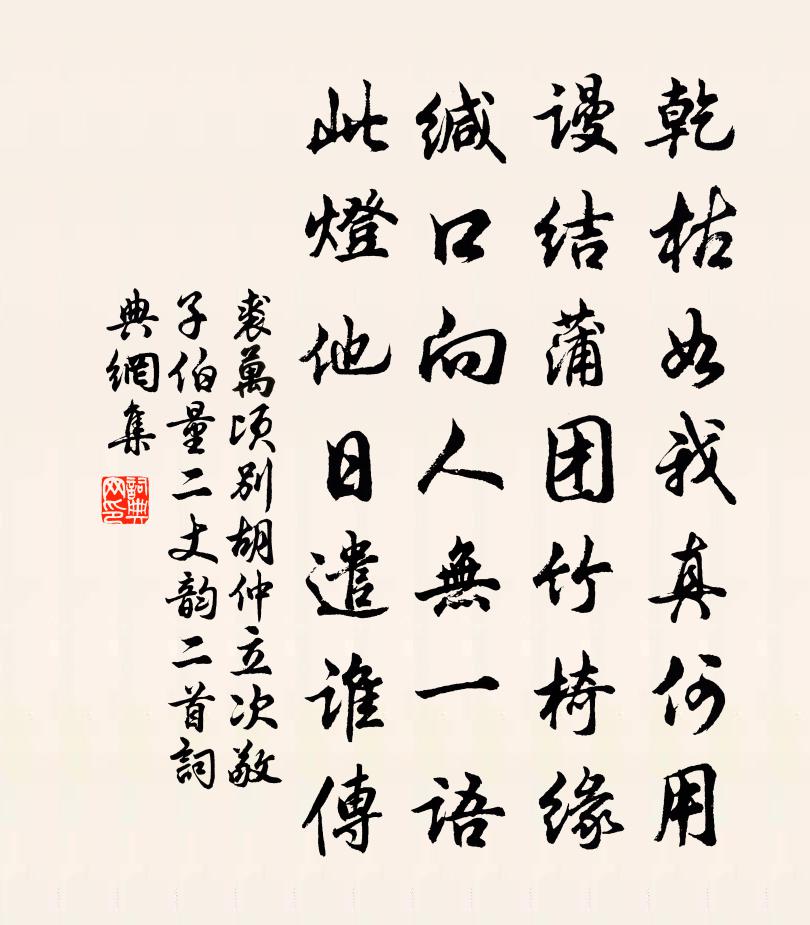 乾枯如我真何用
谩结蒲团竹椅缘
缄口向人無一语
此燈他日遣谁傳
裘萬顷别胡仲立次敬
子伯量二丈韵二首詞
典網集
詞典网印